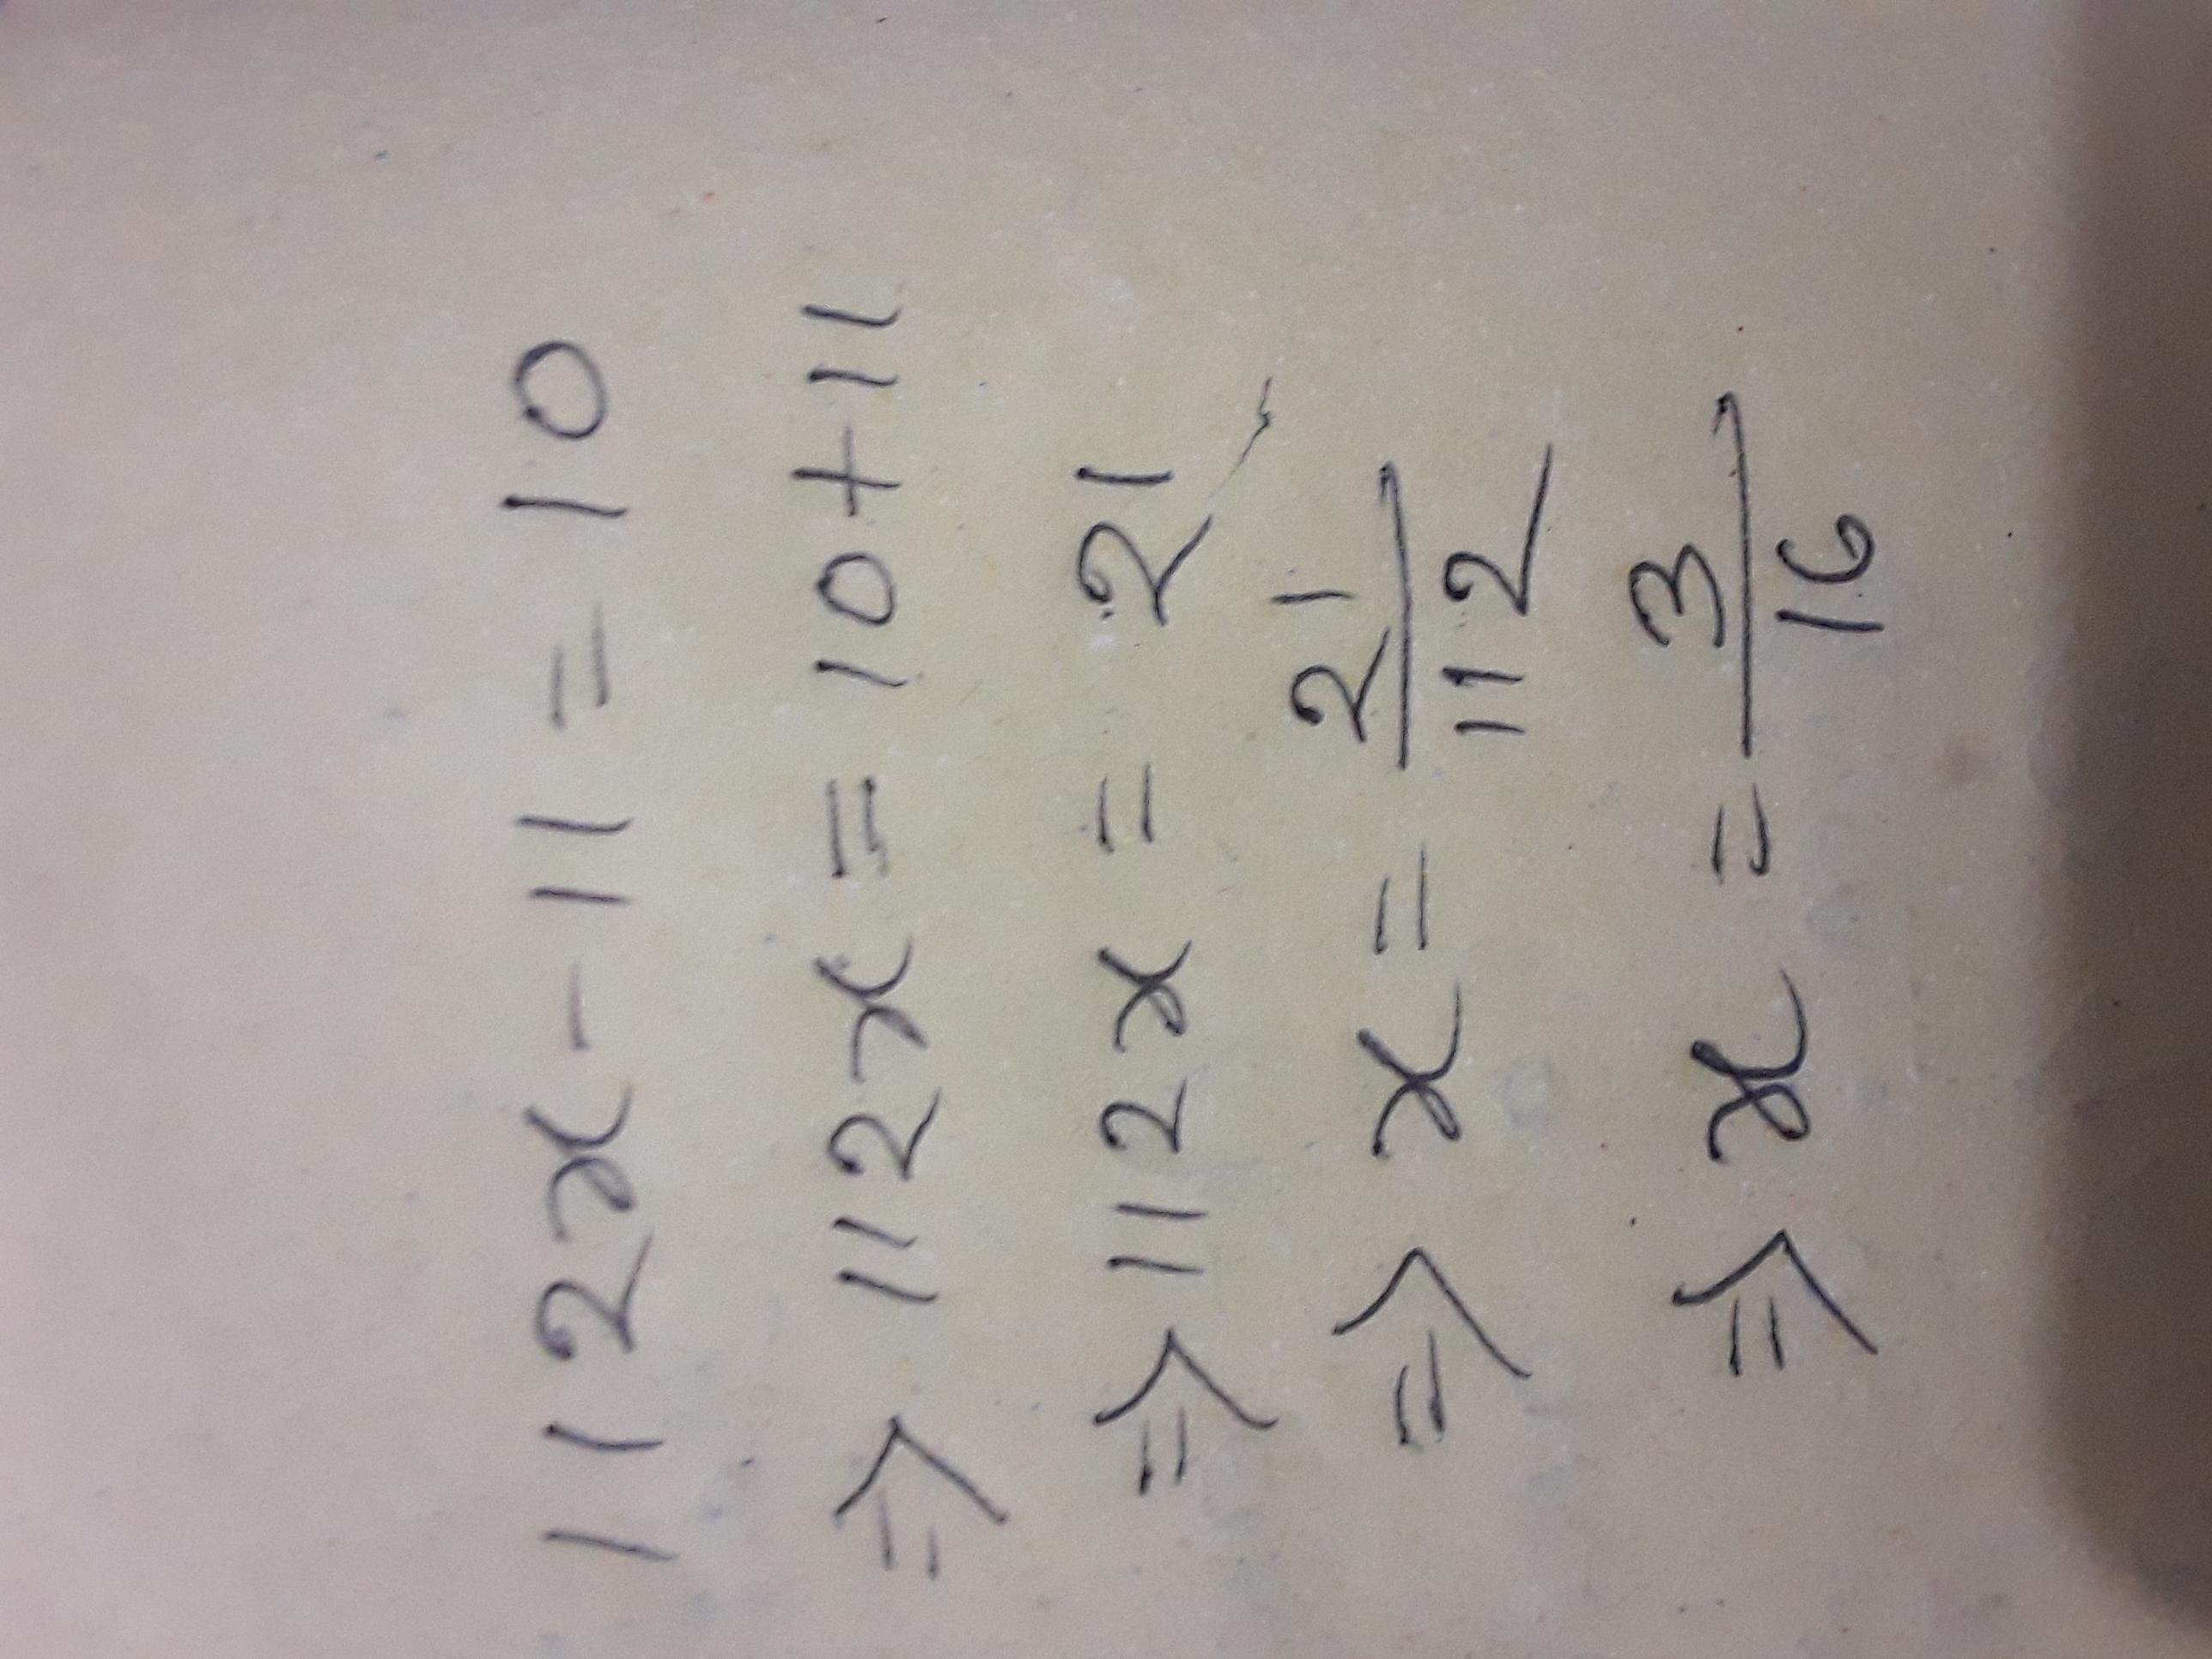 112x - 11 = 10
⇒ 112x = 10 + 11
⇒ 112x = 21
⇒ x = 21/112
⇒ x = 3/16